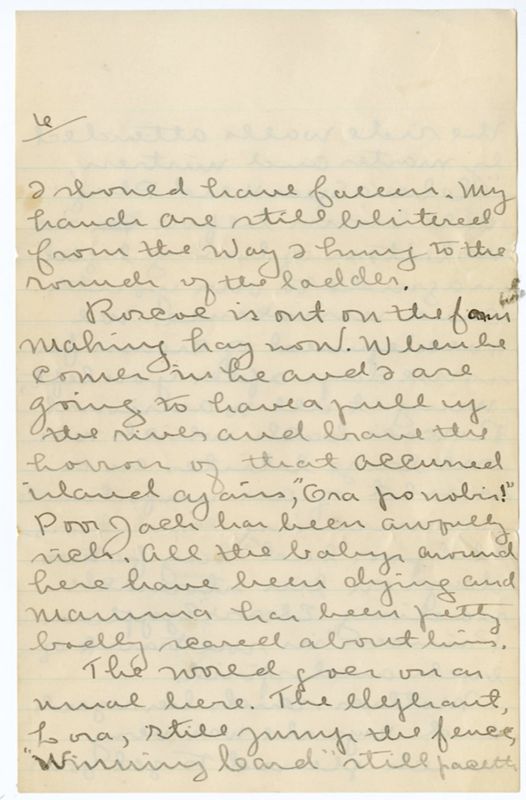 6
I should have fallen. My
hands are still blistered
from the way I hung to the
rounds of the ladder.
Roscoe is out on the farm
making hay now. When he
comes in he and I are
going to have a pull up
the river and brave the
horrors of that accursed
island again, "Ora pro nobis!"
Poor Jack has been awfully
sick. All the babys around
here have been dying and
Mamma has been pretty
badly scared about him.
The world goes on as
usual here. The Elephant,
Lora, still jumps the fence,
"Winning Card" still paceth